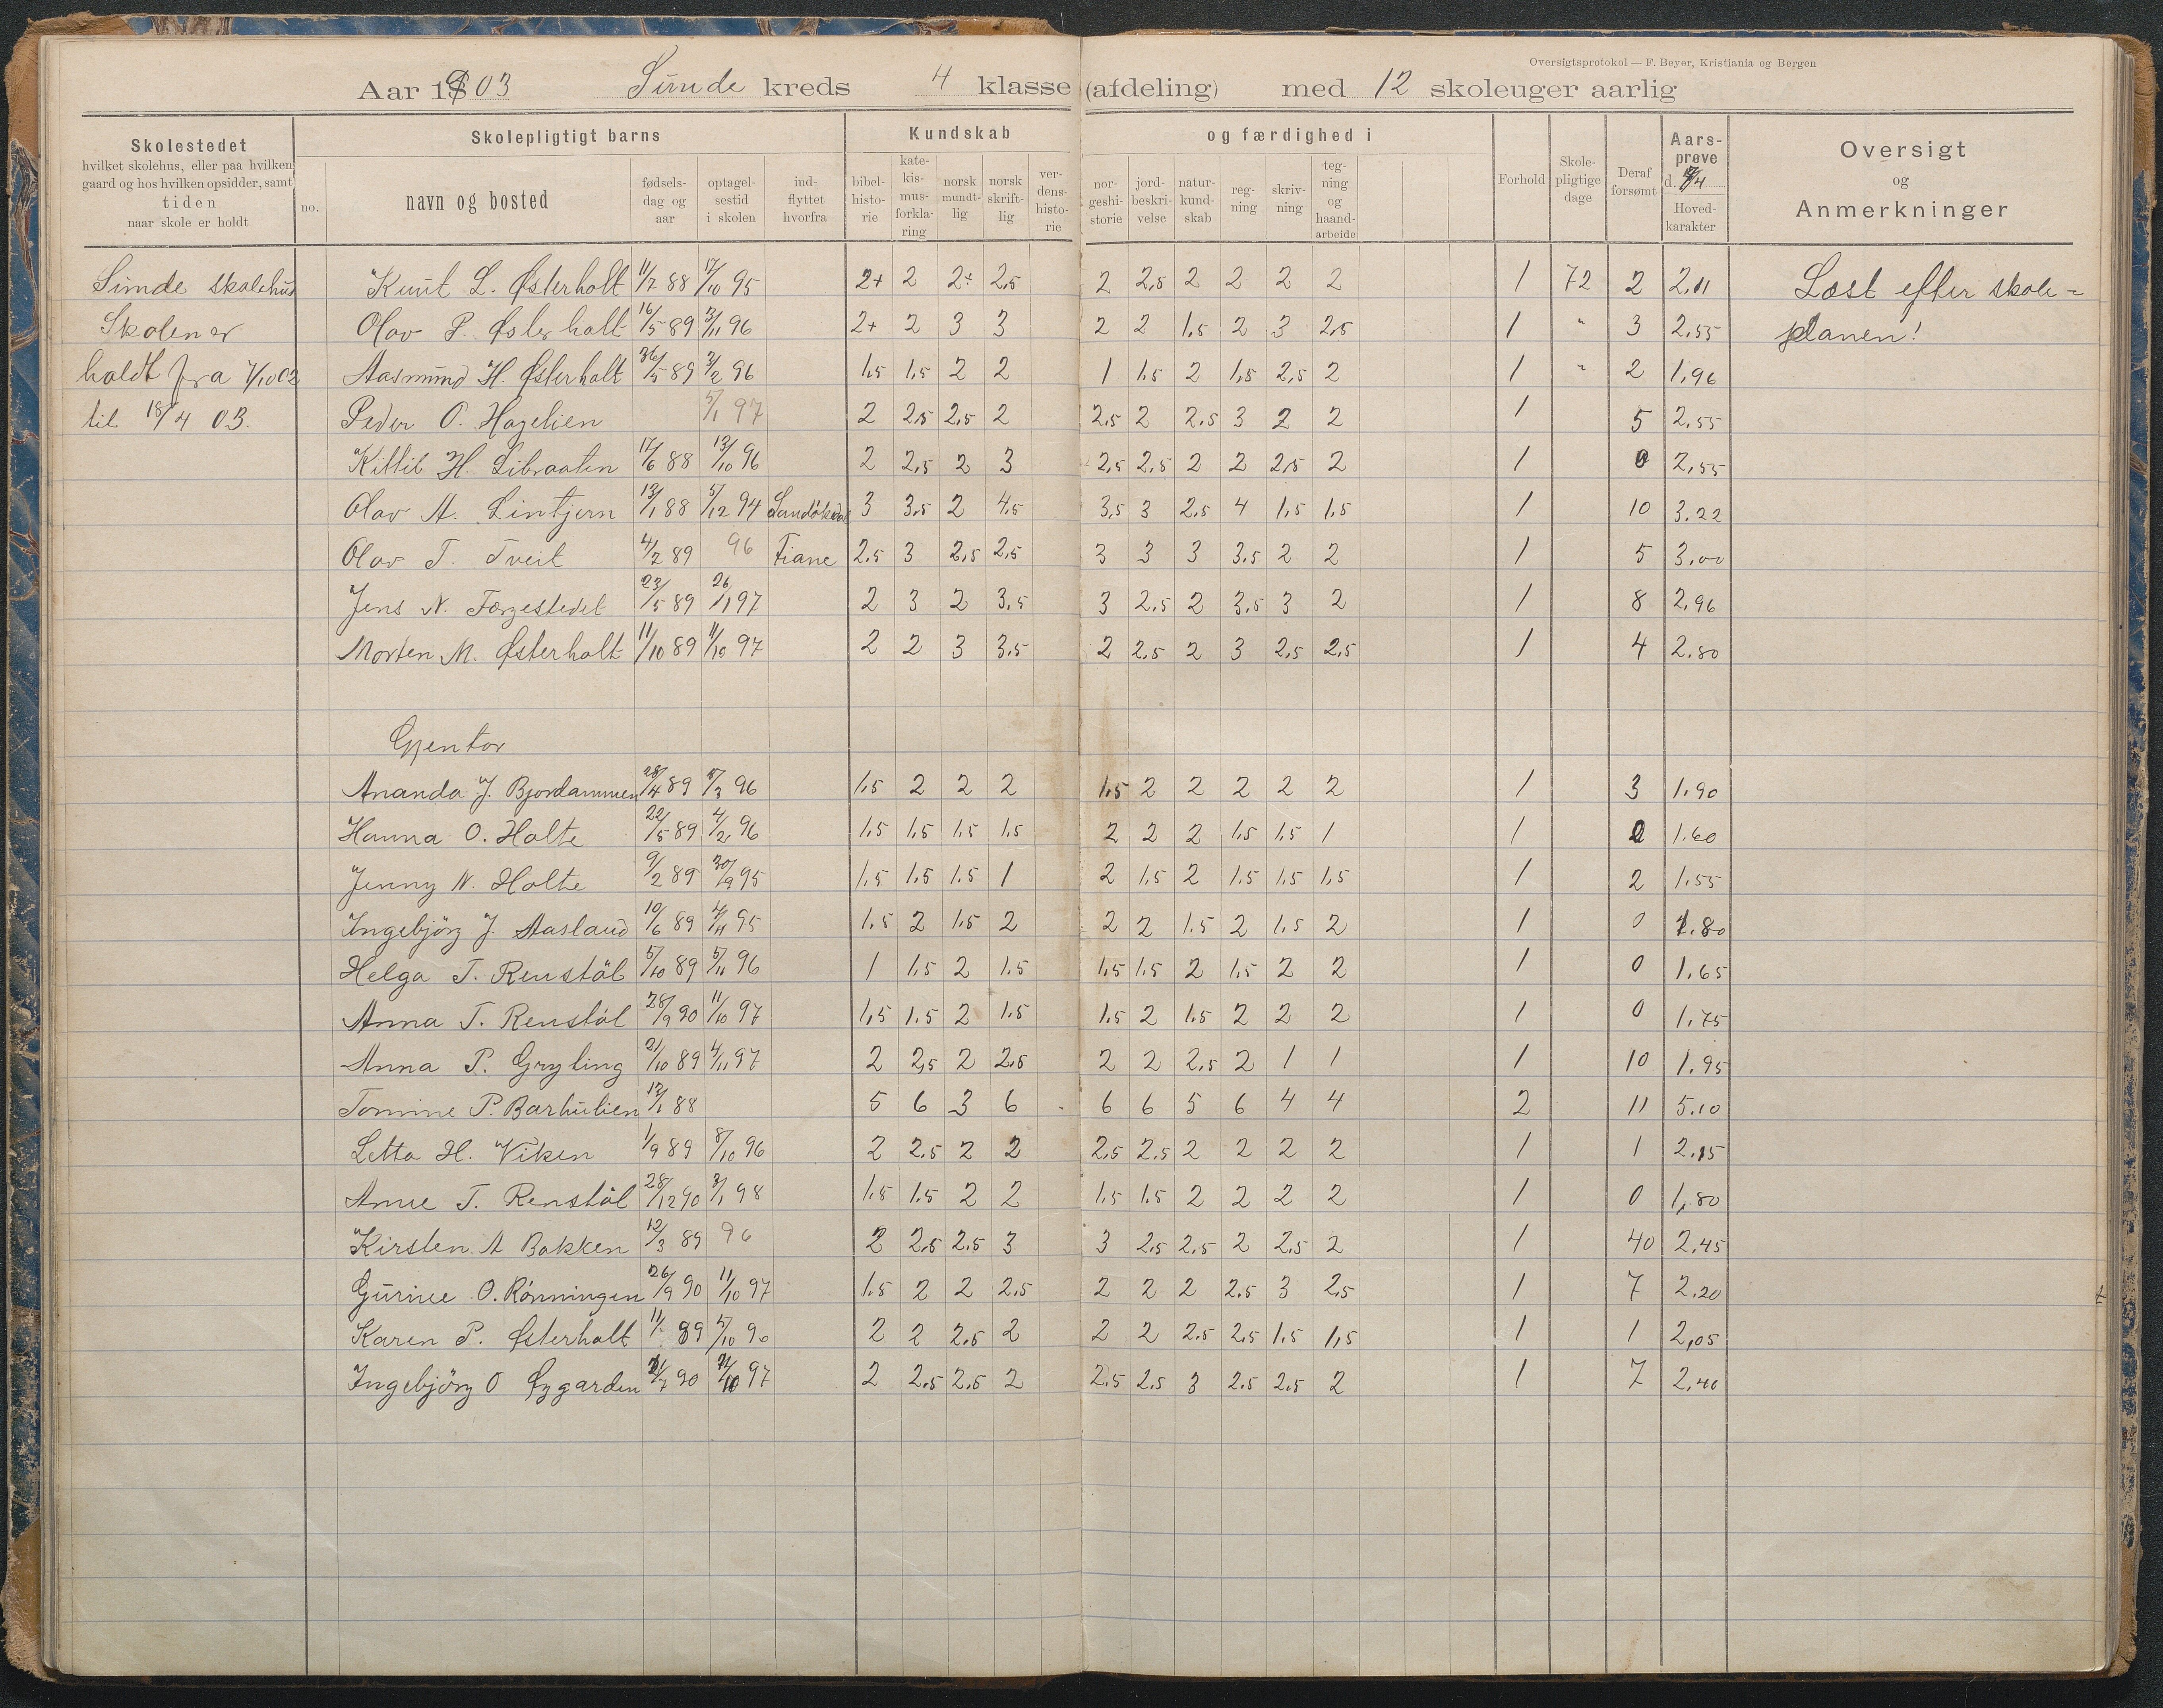 Oversigtsprotokol — F. Beyer, Kristiania og Bergen
Aar 1903 Sunde kreds 4 klasse (afdeling) med 12 skoleuger aarlig
Skolestedet hvilket skolehus, eller paa hvilken gaard og hos hvilken opsidder, samt tiden naar skole er holdt
Skolepligtigt barns
no. navn og bosted fødsels-dag og aar optagel-sestid i skolen ind-flyttet hvorfra
Kundskab og færdighed i
bibel-histo-rie kate-kis-mus-forkla-ring norsk mundt-lig norsk skrift-lig ver-dens-histo-rie nor-geshi-storie jord-beskri-velse natur-kund-skab reg-ning skriv-ning teg-ning og haand-arbeide
Forhold Skole-pligtige dage Deraf forsømt Aars-prøve d. /4 Hoved-karakter
Oversigt og Anmerkninger
Sunde skolehus Knut L. Østerholt 11/7 88 17/10 95 2+ 2 2÷ 2,5 2 2,5 2 2 2 2 1 72 2 2,11 Læst efter skole=
Skolen er Olav P. Østerholt 16/5 89 3/11 96 2+ 2 3 3 2 2 1,5 2 3 2,5 1 " 3 2,55 planen!
holdt fra 7/10 02 Aasmund H. Østerholt 5 89 3/2 96 1,5 1,5 2 2 1 1,5 2 1,5 2,5 2 1 " 2 1,96
til 18/4 03. Peder O. Hagelien 5/1 97 2 2,5 2,5 2 2,5 2 2,5 3 2 2 1 5 2,55
Kittil H. Libraaten 17/6 88 13/10 96 2 2,5 2 3 2,5 2,5 2 2 2,5 2 1 0 2,55
Olav A. Lintjern 13/1 88 5/12 94 3 3,5 2 4,5 3,5 3 2,5 4 1,5 1,5 1 10 3.22
Olav T. Tveit 4/2 89 96 Fiane 2,5 3 2,5 2,5 3 3 3 3,5 2 2 1 5 3,00
Jens N. Færgestedet 23/5 89 26/1 97 2 3 2 3,5 3 2,5 2 3,5 3 2 1 8 2,96
Morten M. Østerholt 11/10 89 11/10 97 2 2 3 3,5 2 2,5 2 3 2,5 2,5 1 4 2.80
Gjentor
Ananda J. Bjordammen 28/4 89 /3 96 1,5 2 2 2 1,5 2 2 2 2 2 1 3 1.90
Hanna O. Holte 22/5 89 4/2 96 1,5 1,5 1,5 1,5 2 2 2 1,5 1,5 1 1 1.60
Jenny N. Holte 9/2 89 30/9 95 1,5 1,5 1.5 1 2 1,5 2 1,5 1,5 1,5 1 2 1.55
Ingebjörg J. Aasland 10/6 89 4/11 95 1,5 2 1,5 2 2 2 1,5 2 1,5 2 1 0 1.80
Helga T. Renstöl 5/10 89 5/11 96 1 1,5 2 1,5 1,5 1,5 2 1,5 2 2 1 0 1,65
Anna T. Renstöl 28/9 90 11/10 97 1,5 1.5 2 1,5 1,5 2 1,5 2 2 2 1 0 1,75
Anna P. Gryting 21/10 89 4/11 97 2 2,5 2 2,5 2 2 2,5 2 1 1 1 10 1.95
Tomine P. Barhulien 12/1 88 5 6 3 6 6 6 5 6 4 4 2 11 5.10
Letta H. Viken 1/9 89 8/10 96 2 2,5 2 2 2,5 2,5 2 2 2 2 1 1 2.15
Anne T. Renstöl 28/12 90 3/1 98 1,5 1,5 2 2 1,5 1,5 2 2 2 2 1 0 1,80
Kirsten A Bakken 12/3 89 96 2 2,5 2,5 3 3 2,5 2,5 2 2,5 2 1 40 2,45
Gurine O. Rønningen 26/9 90 11/10 97 1,5 2 2 2,5 2 2 2 2,5 3 2,5 1 7 2.20
Karen P. Østerholt 11/ 89 5/10 96 2 2 2,5 2 2 2 2,5 2,5 1,5 1,5 1 1 2,05
Ingebjörg O Øygarden /7 90 /10 97 2 2,5 2,5 2 2,5 2,5 3 2,5 2,5 2 1 7 2,40